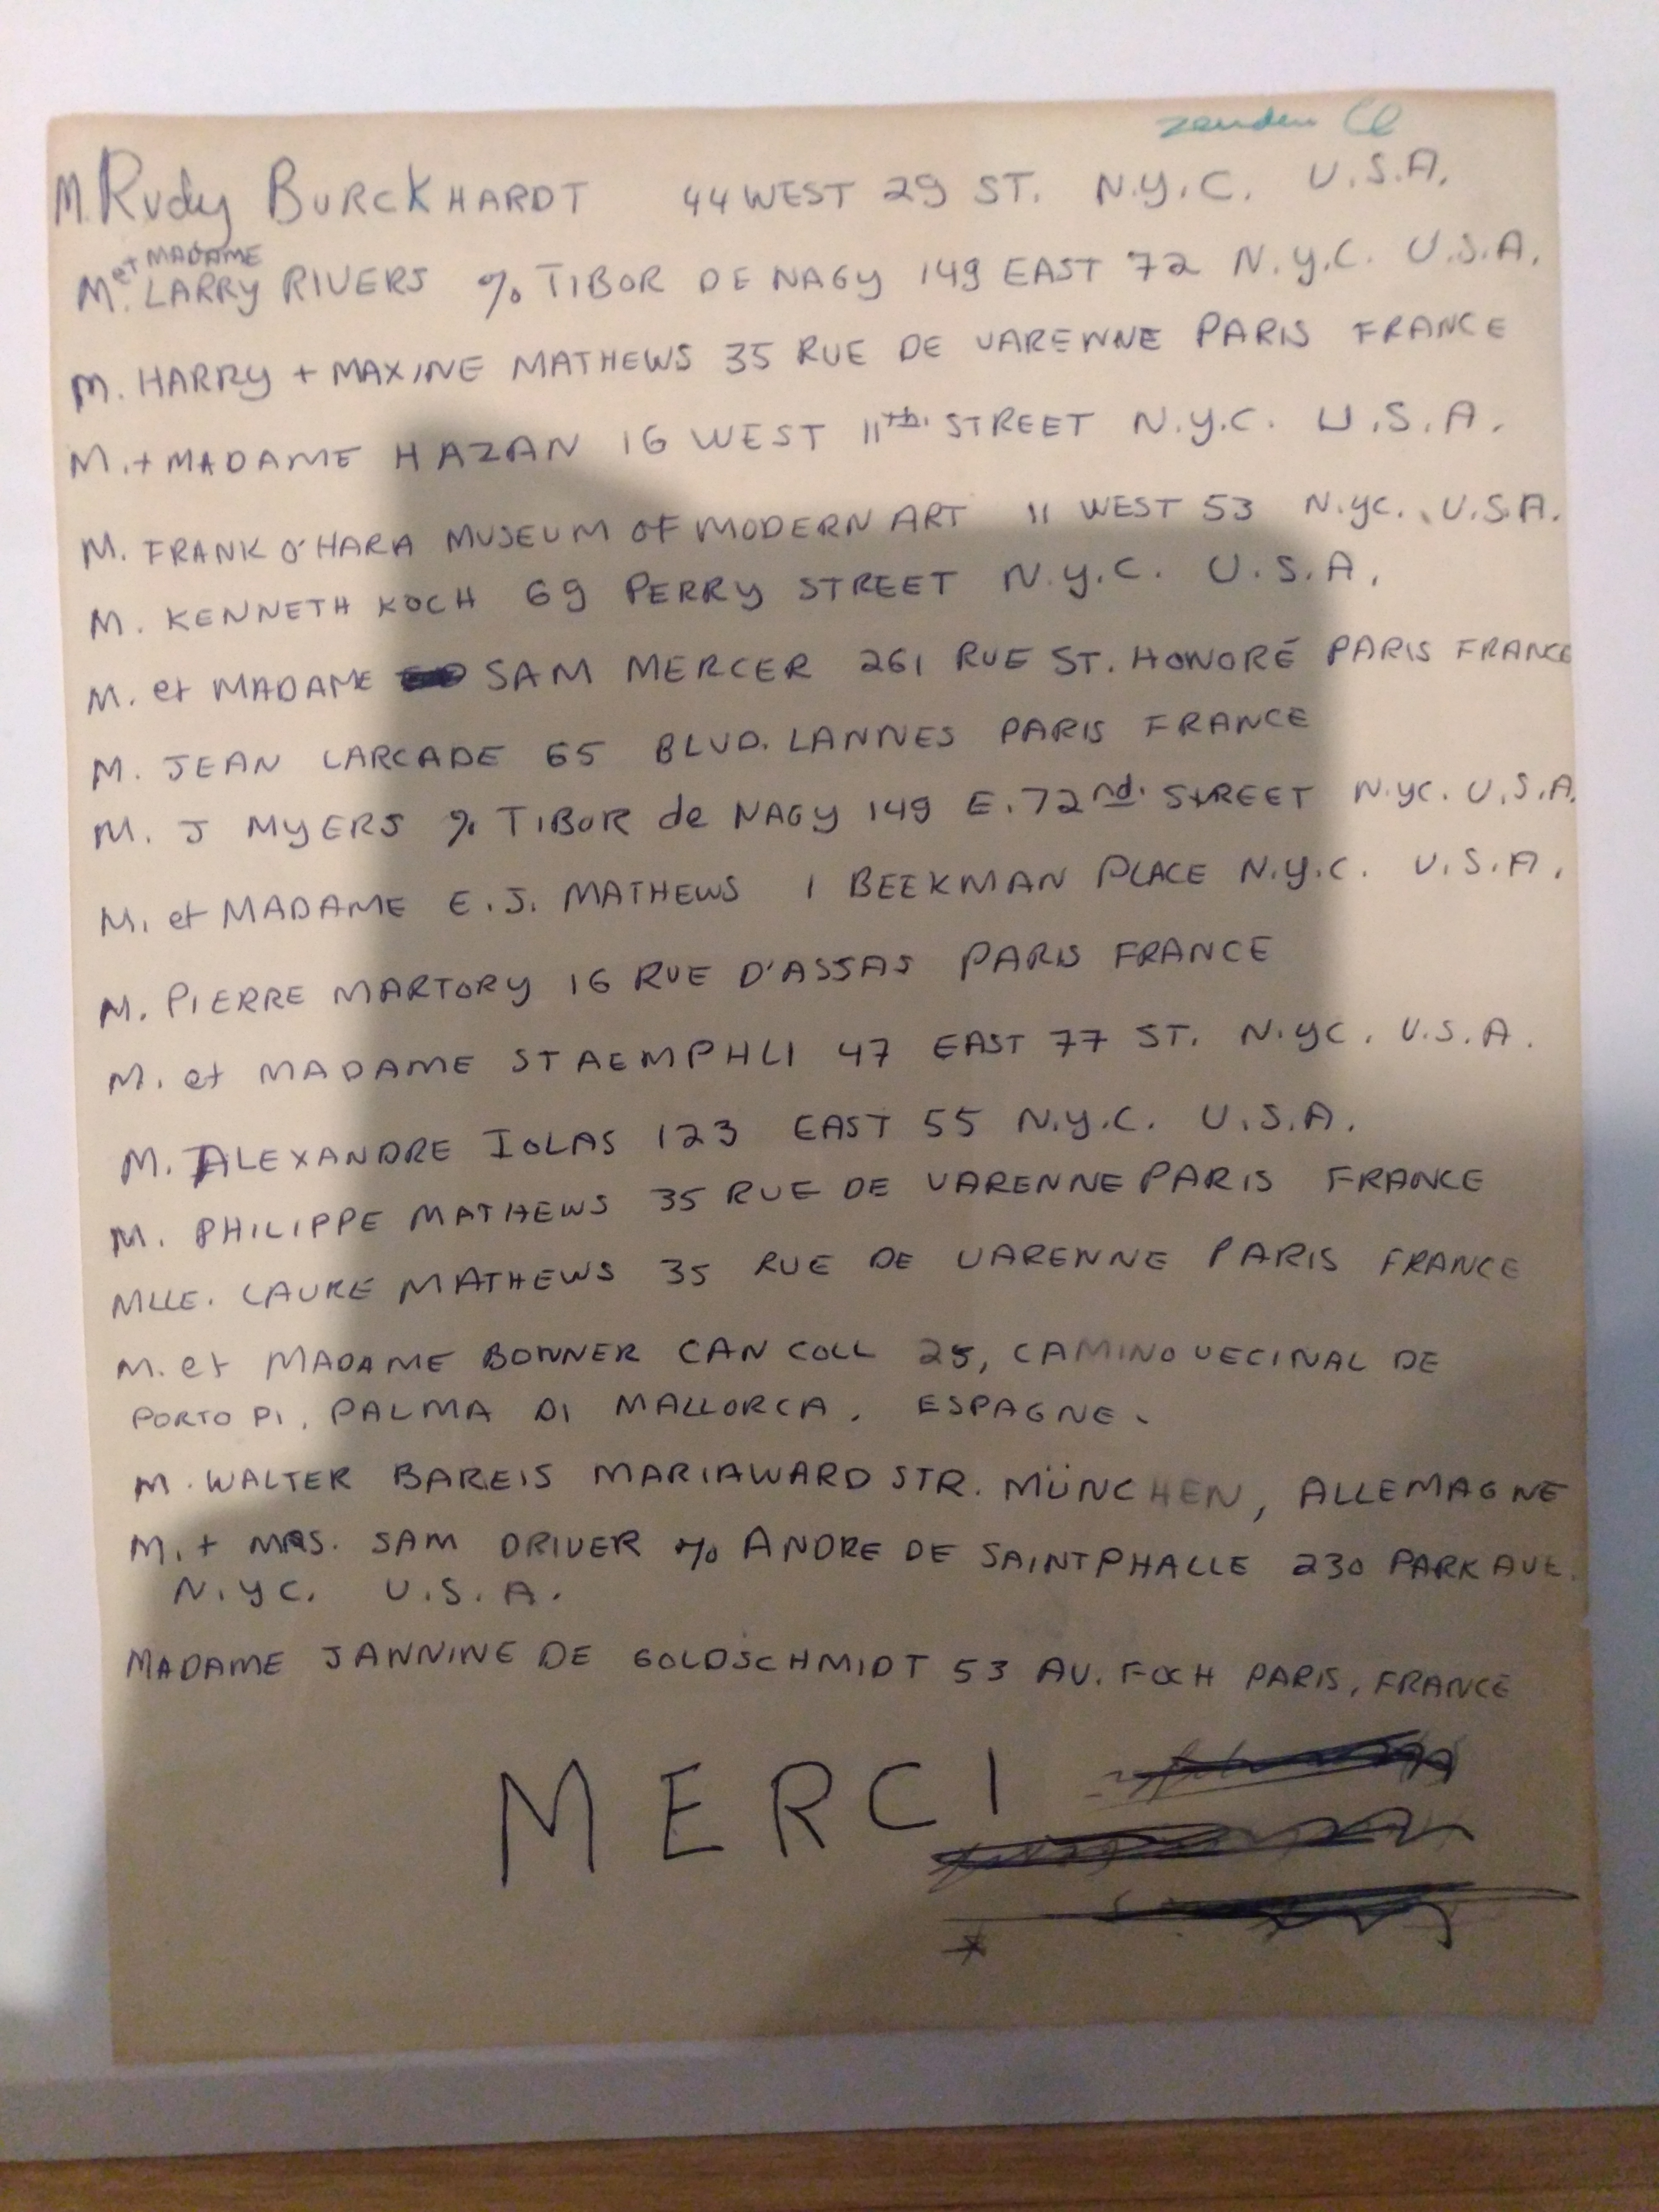 zenden
M. Rudy BURCKHARDT 44 WEST 29 ST. N.Y.C. U.S.A.
et MADAME
M. LARRY RIVERS % TIBOR DE NAGY 149 EAST 72 N.Y.C. U.S.A.
M. HARRY + MAXINE MATHEWS 35 RUE DE VARENNE PARIS FRANCE
M. + MADAME HAZAN 16 WEST 11th. STREET N.Y.C. U.S.A.
M. FRANK O'HARA MUSEUM OF MODERN ART 11 WEST 53 N.YC. U.S.A.
M. KENNETH KOCH 69 PERRY STREET N.Y.C. U.S.A.
M. et MADAME SAM MERCER 261 RUE ST. HONORÉ PARIS FRANCE
M. JEAN LARCADE 65 BLVD. LANNES PARIS FRANCE
M. J MYERS % TIBOR de NAGY 149 E. 72nd. STREET N.YC. U.S.A.
M. et MADAME E.J. MATHEWS 1 BEEKMAN PLACE N.Y.C. U.S.A.
M. PIERRE MARTORY 16 RUE D'ASSAS PARIS FRANCE
M. et MADAME STAEMPHLI 47 EAST 77 ST. N.YC. U.S.A.
M. ALEXANDRE IOLAS 123 EAST 55 N.Y.C. U.S.A.
M. PHILIPPE MATHEWS 35 RUE DE VARENNE PARIS FRANCE
MLLE. LAURE MATHEWS 35 RUE DE VARENNE PARIS FRANCE
M. et MADAME BONNER CAN COLL 25, CAMINO VECINAL DE
PORTO PI, PALMA DI MALLORCA. ESPAGNE.
M. WALTER BAREIS MARIAWARD STR. MÜNCHEN, ALLEMAGNE
M. + MRS. SAM DRIVER % ANDRE DE SAINTPHALLE 230 PARK AVE.
N.YC. U.S.A.
MADAME JANNINE DE GOLDSCHMIDT 53 AV. FOCH PARIS, FRANCE
MERCI